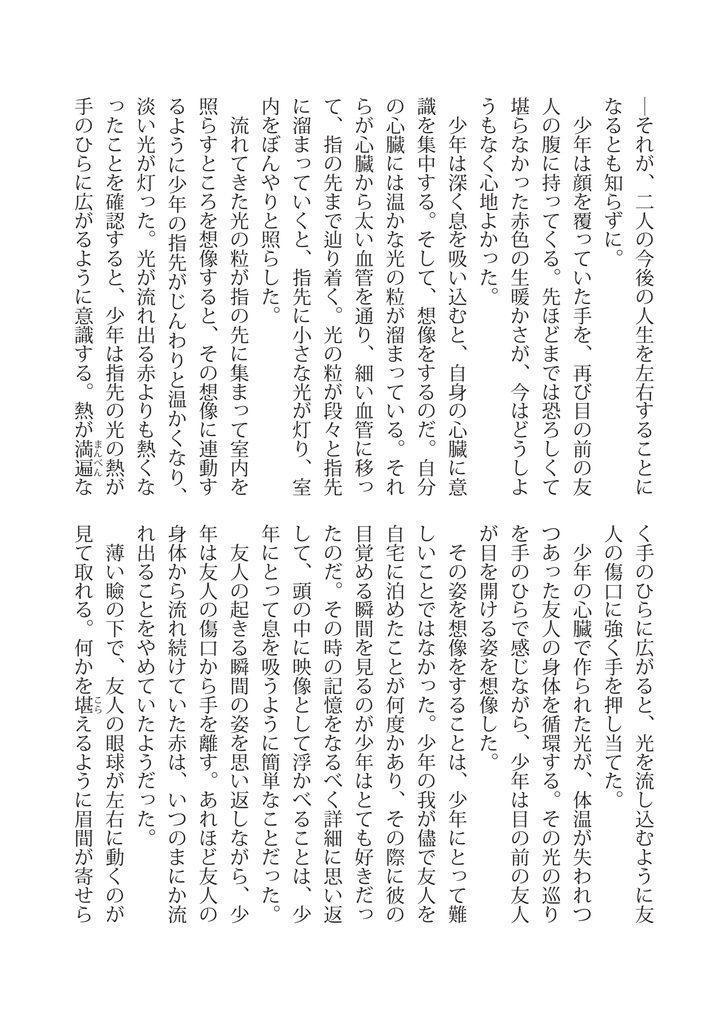 ―それが、二人の今後の人生を左右することに
なるとも知らずに。
　少年は顔を覆っていた手を、再び目の前の友
人の腹に持ってくる。先ほどまでは恐ろしくて
堪らなかった赤色の生暖かさが、今はどうしよ
うもなく心地よかった。
　少年は深く息を吸い込むと、自身の心臓に意
識を集中する。そして、想像をするのだ。自分
の心臓には温かな光の粒が溜まっている。それ
らが心臓から太い血管を通り、細い血管に移っ
て、指の先まで辿り着く。光の粒が段々と指先
に溜まっていくと、指先に小さな光が灯り、室
内をぼんやりと照らした。
　流れてきた光の粒が指の先に集まって室内を
照らすところを想像すると、その想像に連動す
るように少年の指先がじんわりと温かくなり、
淡い光が灯った。光が流れ出る赤よりも熱くな
ったことを確認すると、少年は指先の光の熱が
手のひらに広がるように意識する。熱が満遍な
まんべん
く手のひらに広がると、光を流し込むように友
人の傷口に強く手を押し当てた。
　少年の心臓で作られた光が、体温が失われつ
つあった友人の身体を循環する。その光の巡り
を手のひらで感じながら、少年は目の前の友人
が目を開ける姿を想像した。
　その姿を想像をすることは、少年にとって難
しいことではなかった。少年の我が儘で友人を
自宅に泊めたことが何度かあり、その際に彼の
目覚める瞬間を見るのが少年はとても好きだっ
たのだ。その時の記憶をなるべく詳細に思い返
して、頭の中に映像として浮かべることは、少
年にとって息を吸うように簡単なことだった。
　友人の起きる瞬間の姿を思い返しながら、少
年は友人の傷口から手を離す。あれほど友人の
身体から流れ続けていた赤は、いつのまにか流
れ出ることをやめていたようだった。
　薄い瞼の下で、友人の眼球が左右に動くのが
見て取れる。何かを堪えるように眉間が寄せら
こら